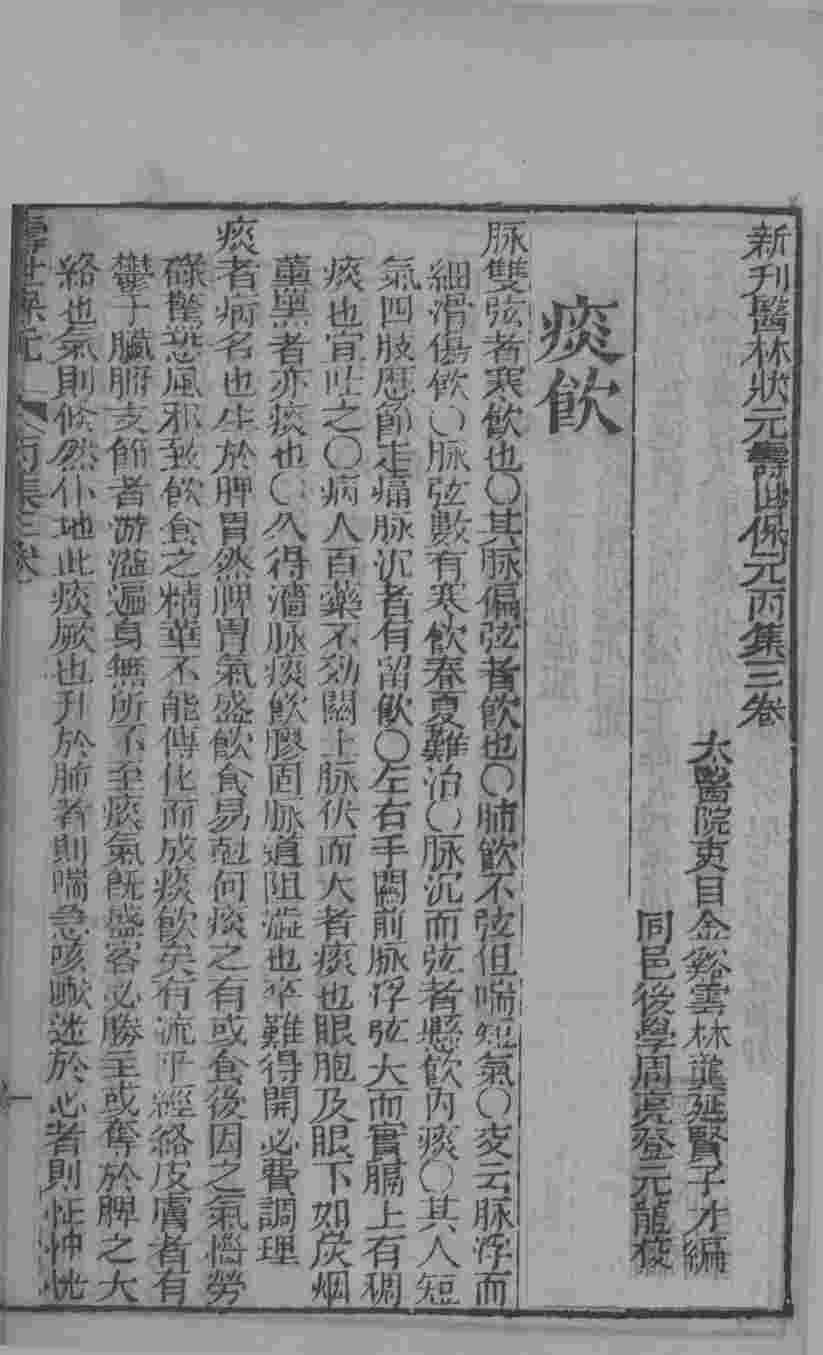 新刊醫林狀元壽世保元丙集三卷
太醫院吏目金谿雲林龔廷賢子才編
同邑後學周亮登元龍校
痰飲
脉雙弦者寒飲也〇其脉偏弦者飲也〇肺飲不弦但喘短氣〇又云脉浮而
細滑傷飲〇脉弦數有寒飲春夏難治〇脉沉而弦者懸飲内痰〇其人短
氣四肢歷節走痛脉沉者有留飲〇左右手關前脉浮弦大而實膈上有稠
痰也宜吐之〇病人百藥不効關上脉伏而大者痰也眼胞及眼下如炭烟
薰黑者亦痰也〇久得濇脉痰飲膠固脉道阻澁也卒難得開必費調理
痰者病名也生於脾胃然脾胃氣盛飲食易尅何痰之有或食後因之氣惱勞
碌驚恐風邪致飲食之精華不能傳化而成痰飲矣有流乎經絡皮膚者有
鬱于臟腑支節者游溢遍身無所不至痰氣既盛客必勝主或奪於脾之大
絡也氣則倐然仆地此痰厥也升於肺者則喘急咳嗽迷於心者則怔忡恍
壽世保元 丙集三卷 一